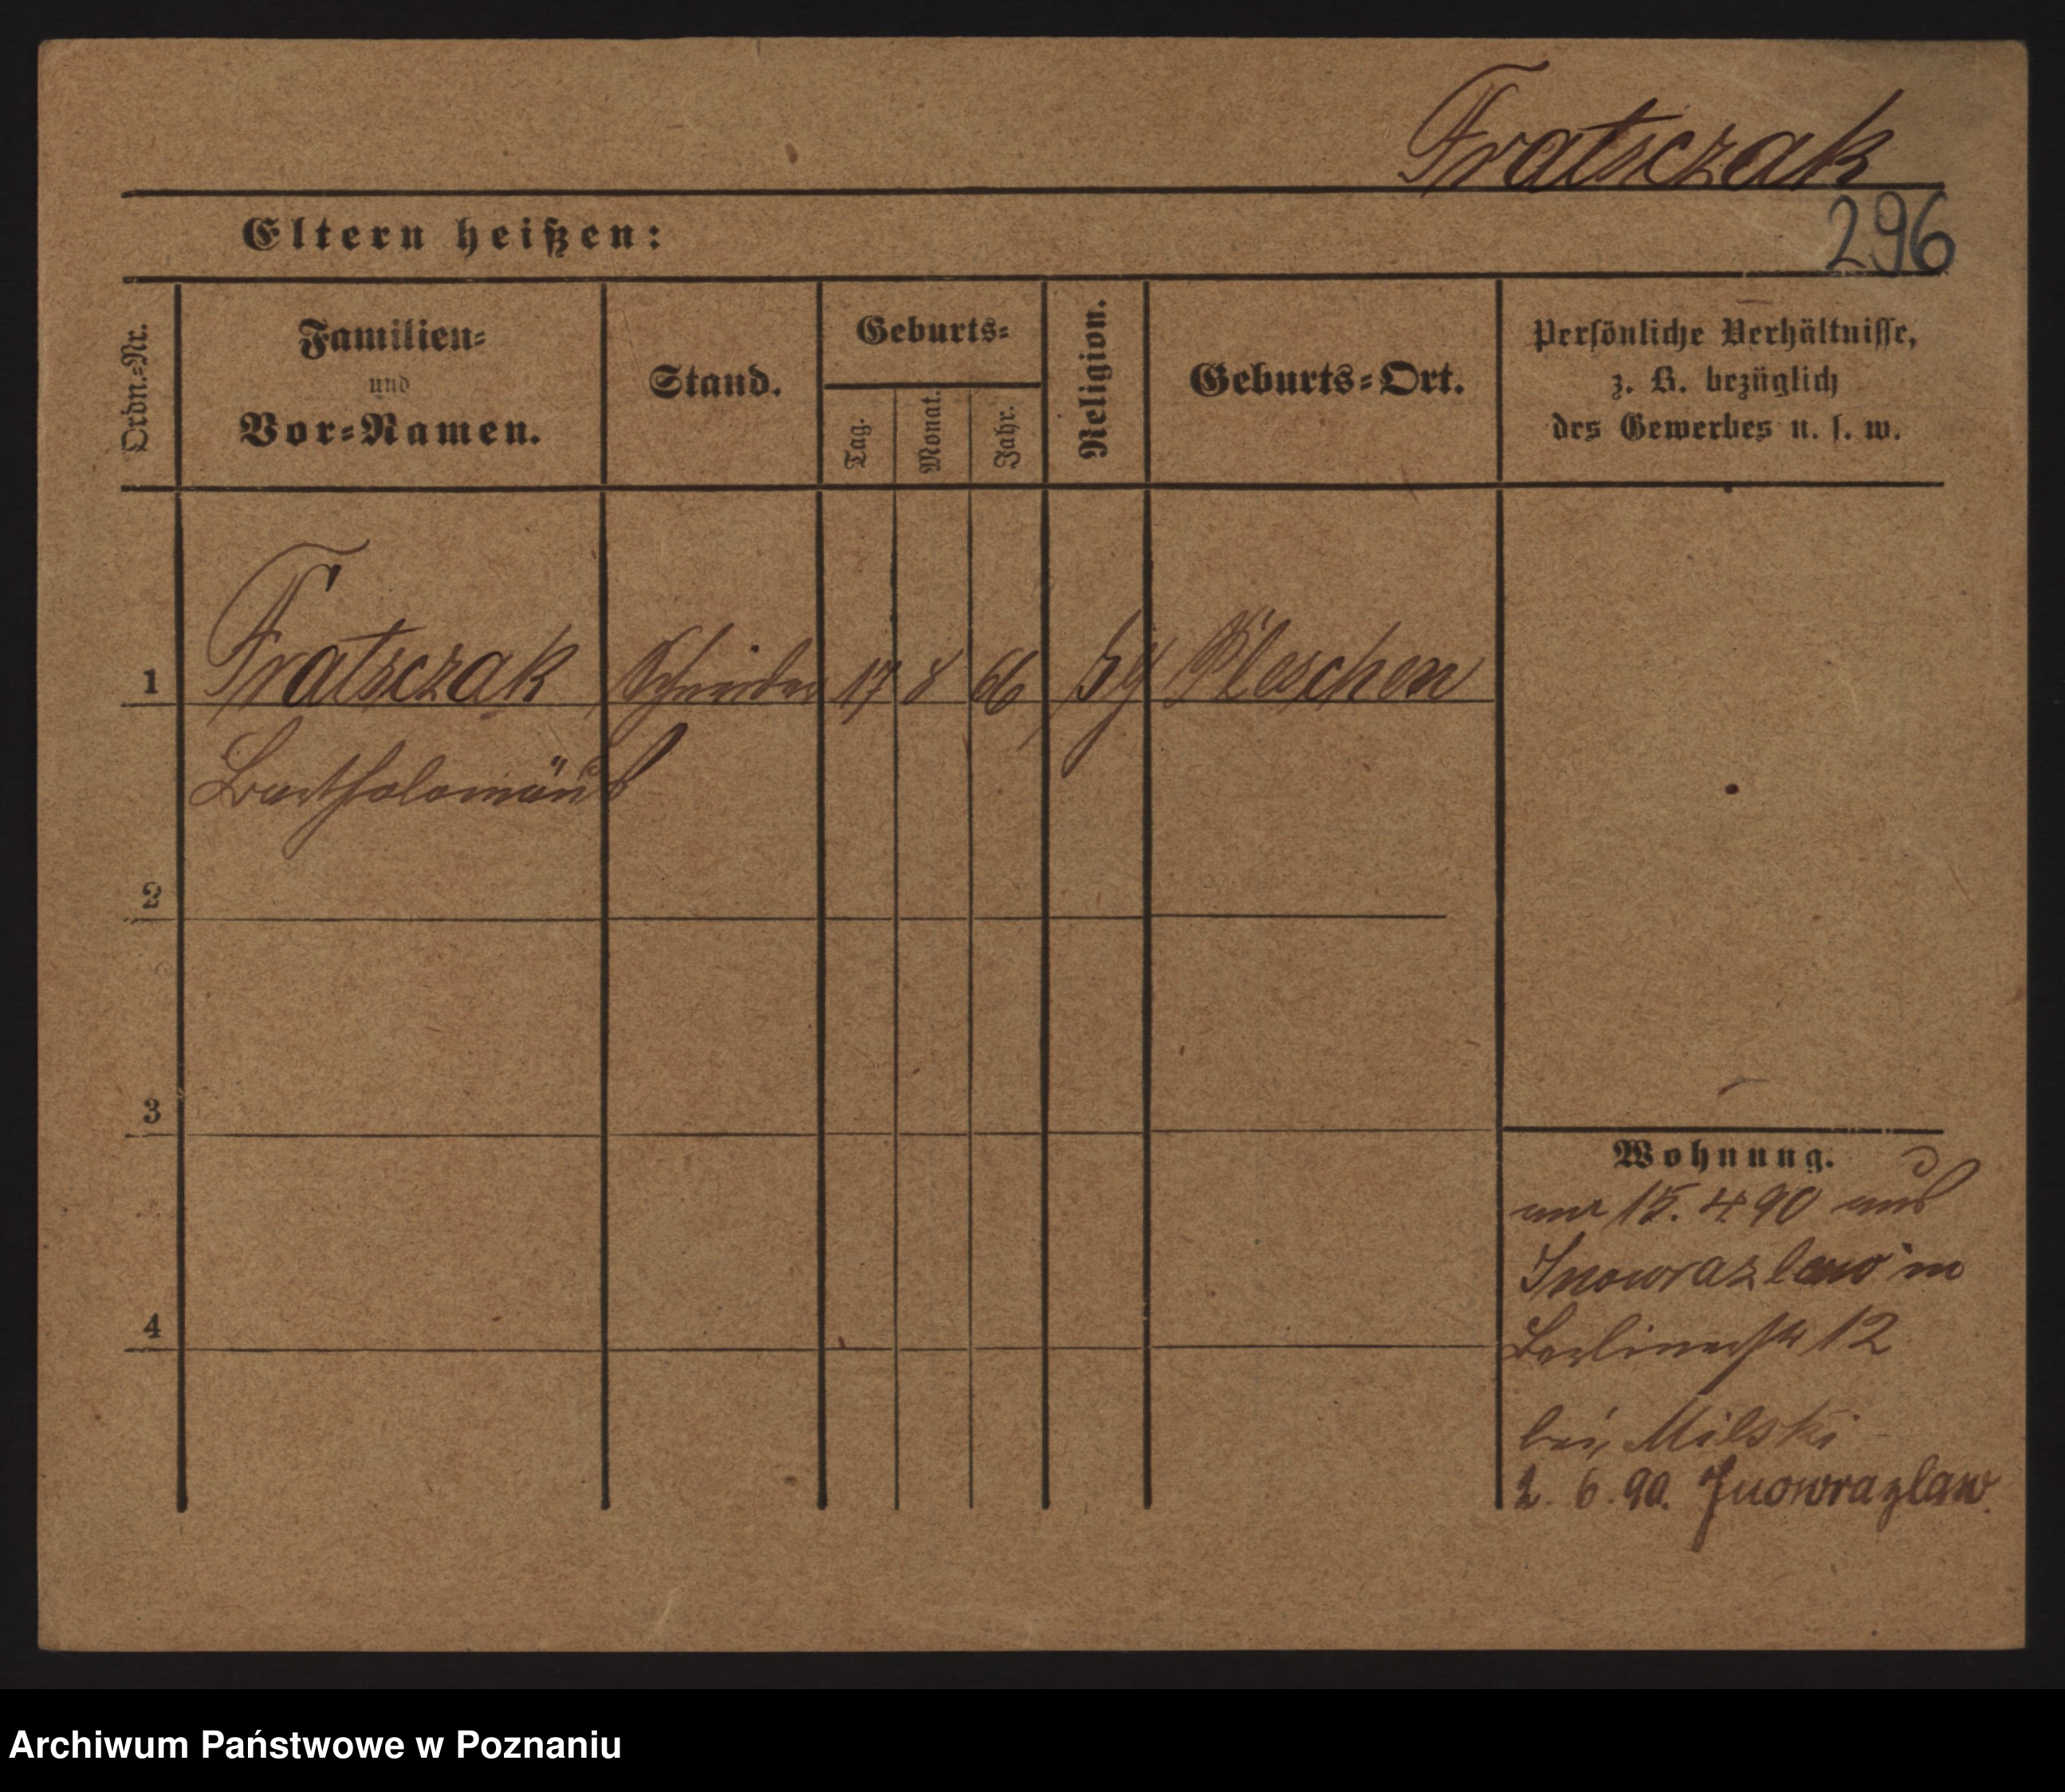 Fratsczak
296
Eltern heißen:
Ordn.-Nr.
Familien-
und
Vor-Namen.
Stand.
Geburts-
Tag.
Monat.
Jahr.
Religion.
Geburts-Ort.
Persönliche Verhältnisse,
z. B. bezüglich
des Gewerbes u. s. w.
1 Fratsczak Schneider 17 8 66 Pleschen
Bartholomäus
2
3
4
Wohnung.
15. 4. 90 aus
Inowrazlaw in
Berlinerstr 12
bei Milski
2. 6. 90. Inowrazlaw.
Archiwum Państwowe w Poznaniu